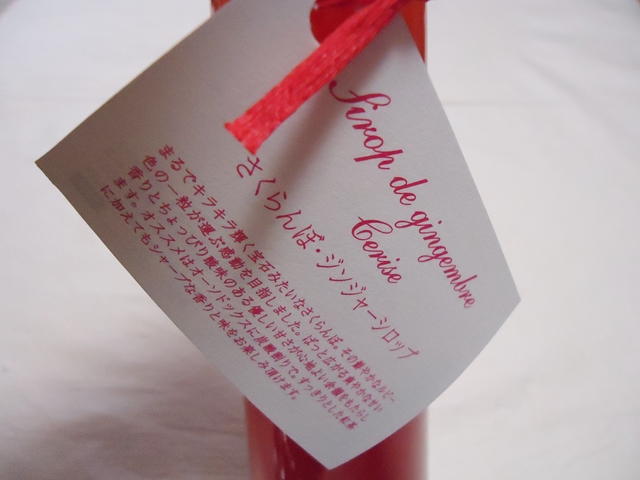 Sirop de gingembre
Cerise
さくらんぼ・ジンジャーシロップ
まるでキラキラ輝く宝石みたいなさくらんぼ。その鮮やかなルビー
色の一粒が運ぶ感動を目指しました。ぱっと広がる爽やかな甘い
香りとちょっぴり酸味のある優しい甘さが心地よい余韻をもたらし
ます。オススメはオーソドックスに炭酸割りで。すっきりとした紅茶
に加えてもシャープな香りと味をお楽しみ頂けます。